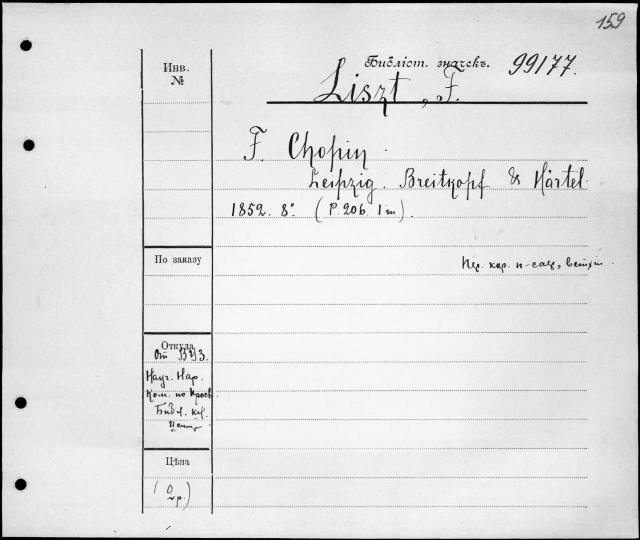 159
Инв. №
Библіот. значекъ. 99177.
Liszt, F.
F. Chopin
Leipzig. Breitkopf & Härtel
1852. 8° (P. 206. 1 m).
По заказу
Пер. кор. п-сац, ветх
Откуда
От ВУЗ.
Науч. Нар.
Ком. по Просв.
Библ. кл.
Центр
Цѣна
( 2р.)